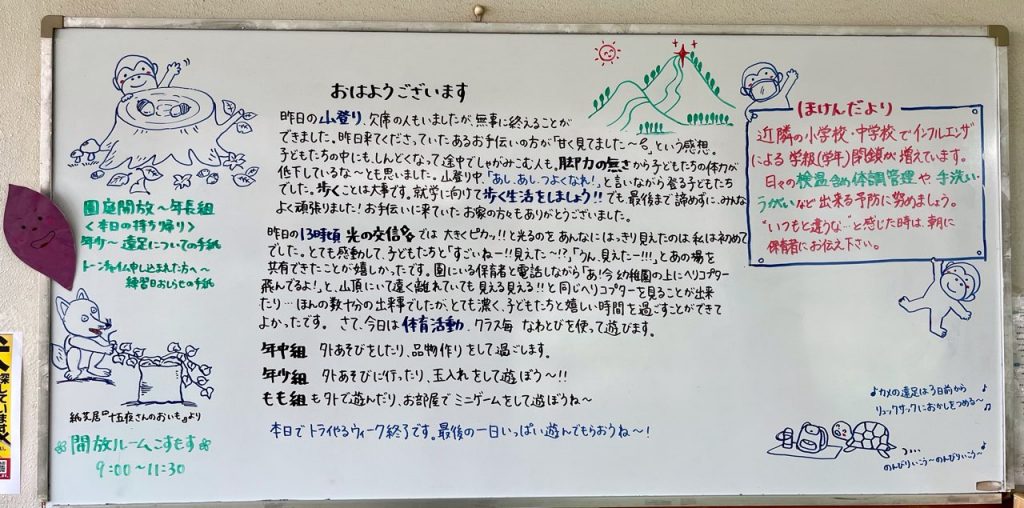 おはようございます
昨日の山登り、欠席の人もいましたが、無事に終えることが
できました。昨日来てくださっていたあるお手伝いの方が「甘く見てました〜」という感想。
子どもたちの中にもしんどくなって途中でしゃがみこむ人も。脚力の無さから子どもたちの体力が
低下しているな〜とも思いました。山登り中、「あし、あし、つよくなれ!」と言いながら登る子どもたち
でした。歩くことは大事です。就学に向けて歩く生活をしましょう!!でも、最後まで諦めずに、みんな
よく頑張りました!お手伝いに来ていたお家の方々もありがとうございました。
昨日の13時頃 光の交信では 大きくピカッ!!と光るのをあんなにはっきり見えたのは私は初めて
でした。とても感動して、子どもたちと「すごいねー!!見えた〜!?」「うん、見えたー!!!」とあの場を
共有できたことが嬉しかったです。園にいる保育者と電話しながら「あ!今幼稚園の上にヘリコプター
飛んでるよ!」と、山頂にいて遠く離れていても見える見える!!と同じヘリコプターを見ることが出来
たり…ほんの数十分の出来事でしたが、とても濃く、子どもたちと嬉しい時間を過ごすことができて
よかったです。 さて、今日は体育活動、クラス毎 なわとびを使って遊びます。
年中組 外あそびをしたり、品物作りをして過ごします。
年少組 外あそびに行ったり、玉入れをして遊ぼう〜!!
もも組も外で遊んだり、お部屋でミニゲームをして遊ぼうね〜
本日でトライやるウィーク終了です。最後の一日いっぱい遊んでもらおうね〜!
園庭開放〜年長組
<本日の持ち帰り>
年少〜遠足についての手紙
トーンチャイム申し込まれた方へ〜
練習日おしらせの手紙
紙芝居『十五夜さんのおいも』より
開放ルームこすもす
9:00〜11:30
ほけんだより
近隣の小学校・中学校でインフルエンザ
による 学級(学年)閉鎖が増えています。
日々の検温含め体調管理や、手洗い・
うがいなど出来る予防に努めましょう。
"いつもと違うな…"と感じた時は、朝に
保育者にお伝え下さい。
♪カメの遠足は3日前から ♪
リュックサックにおかしをつめる〜♫
のんびりいこう〜のんびりいこう〜♪
探しています